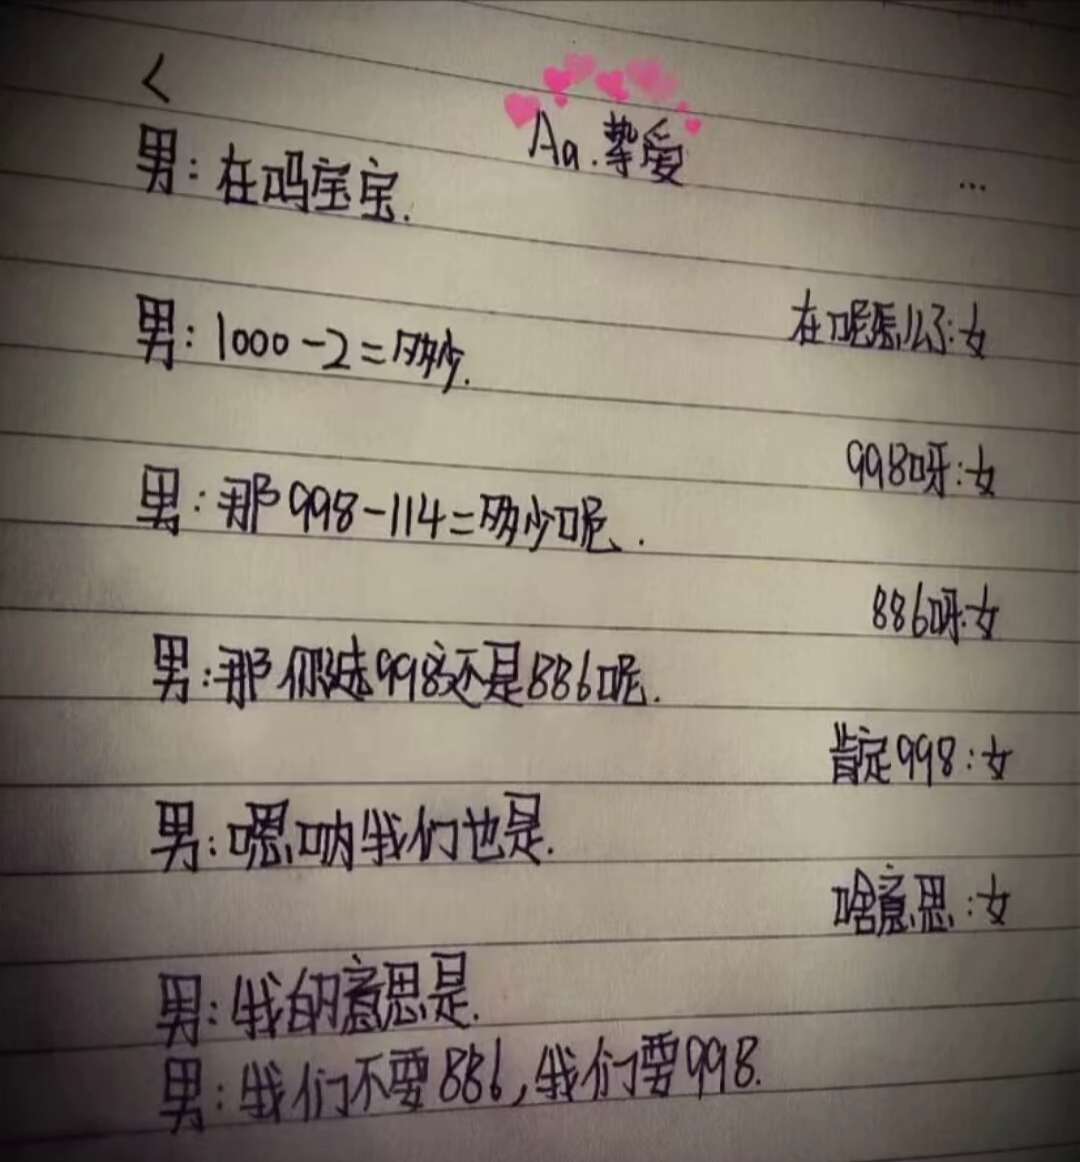 <
Aa.挚爱
...
男:在吗宝宝.
在呢怎么了:女
男:1000-2=多少.
998呀:女
男:那998-114=多少呢.
886呀:女
男:那你选998还是886呢.
肯定998:女
男:嗯呐我们也是.
啥意思:女
男:我的意思是.
男:我们不要886,我们要998.